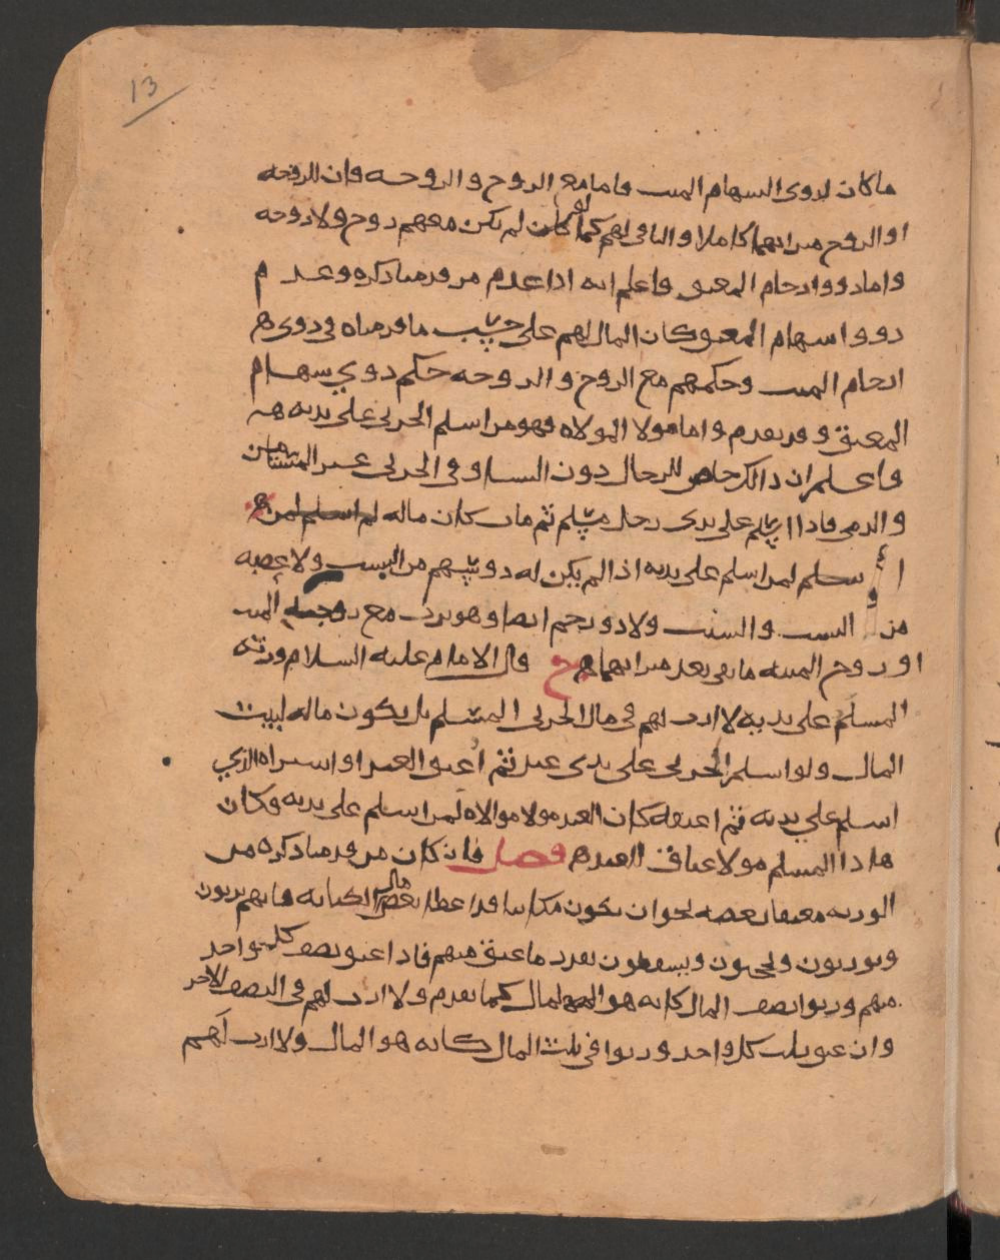 13
ما كان لذوي السهام الميت فاما مع الزوج والزوجه فان للزوجه
او الزوج ميراثهما كاملا والباقي لهم كما لو كان لم يكن معهم زوج ولا زوجه
واما ذووا ارحام المعتق فاعلم انه اذا عدم من قد منا ذكره وعدم
ذووا سهام المعتق كان المال لهم على حسب ما قدمناه في ذوي
ارحام الميت وحكمهم مع الزوج والزوجه حكم ذوي سهام
المعتق وقد تقدم واما مولا الموالاه فهو من اسلم الحربي على يديه
واعلم ان ذالك خاص للرجال دون النساء وفي الحربي غير المستامن
والذمي فاذا اسلم على يدي رجل مسلم ثم مات كان ماله
لمن اسلم على يديه اذا لم يكن له ذو سهم من النسب ولا عصبه
من النسب والسبب ولا ذو رحم ايضا وهو يرث مع زوجه الميت
او زوج الميته ما بقي بعد ميراثهما قال الامام عليه السلام ورثه
المسلم على يديه لا ارث لهم في مال الحربي المسلم بل يكون ماله لبيت
المال ولو اسلم الحربي على يدي عبد ثم اعتق العبد او اشتراه الذي
اسلم على يديه ثم اعتقه كان العبد مولا موالاه لمن اسلم على يديه وكان
هاذا المسلم مولا عتاق العبد فصل فان كان من قد منا ذكره من
الورثه معتقا بعضه نحو ان يكون مكاتبا قد اعطا بعض مال الكتابه فانهم يرثون
ويورثون ويحجبون ويسقطون بقدر ما عتق منهم فاذا عتق نصف كل واحد
منهم ورثوا نصف المال كانه هو المال كما تقدم ولا ارث لهم في النصف الاخر
وان عتق ثلث كل واحد ورثوا في ثلث المال كانه هو المال ولا ارث لهم